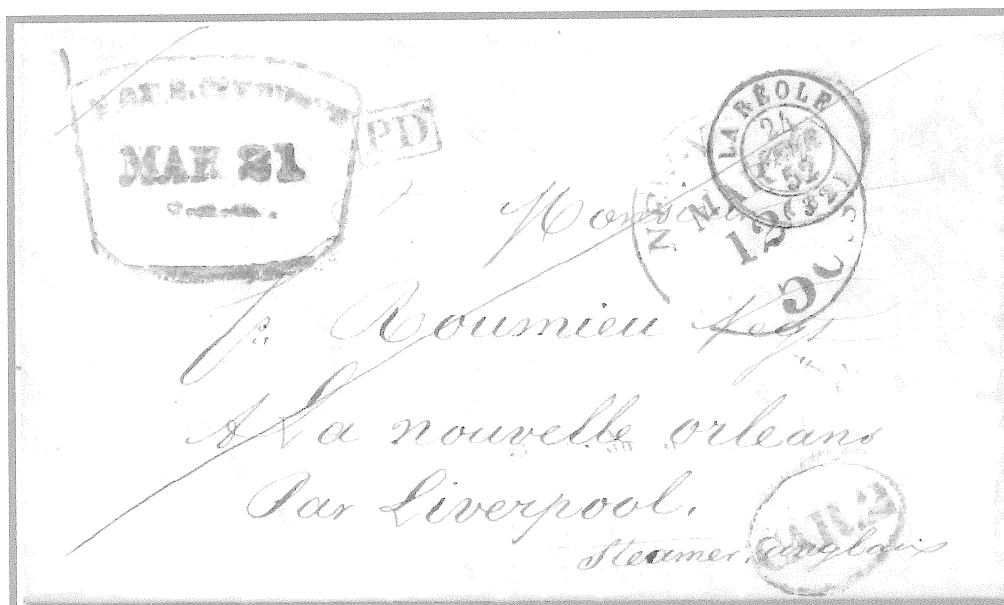 MAR 21
PD
LA RÉOLE
24
FEVR
52
(32)
MAR
12
Monsieur
J. Roumieu Neg.t
A La nouvelle orleans
Par Liverpool.
Steamer. anglais
CAR. 2